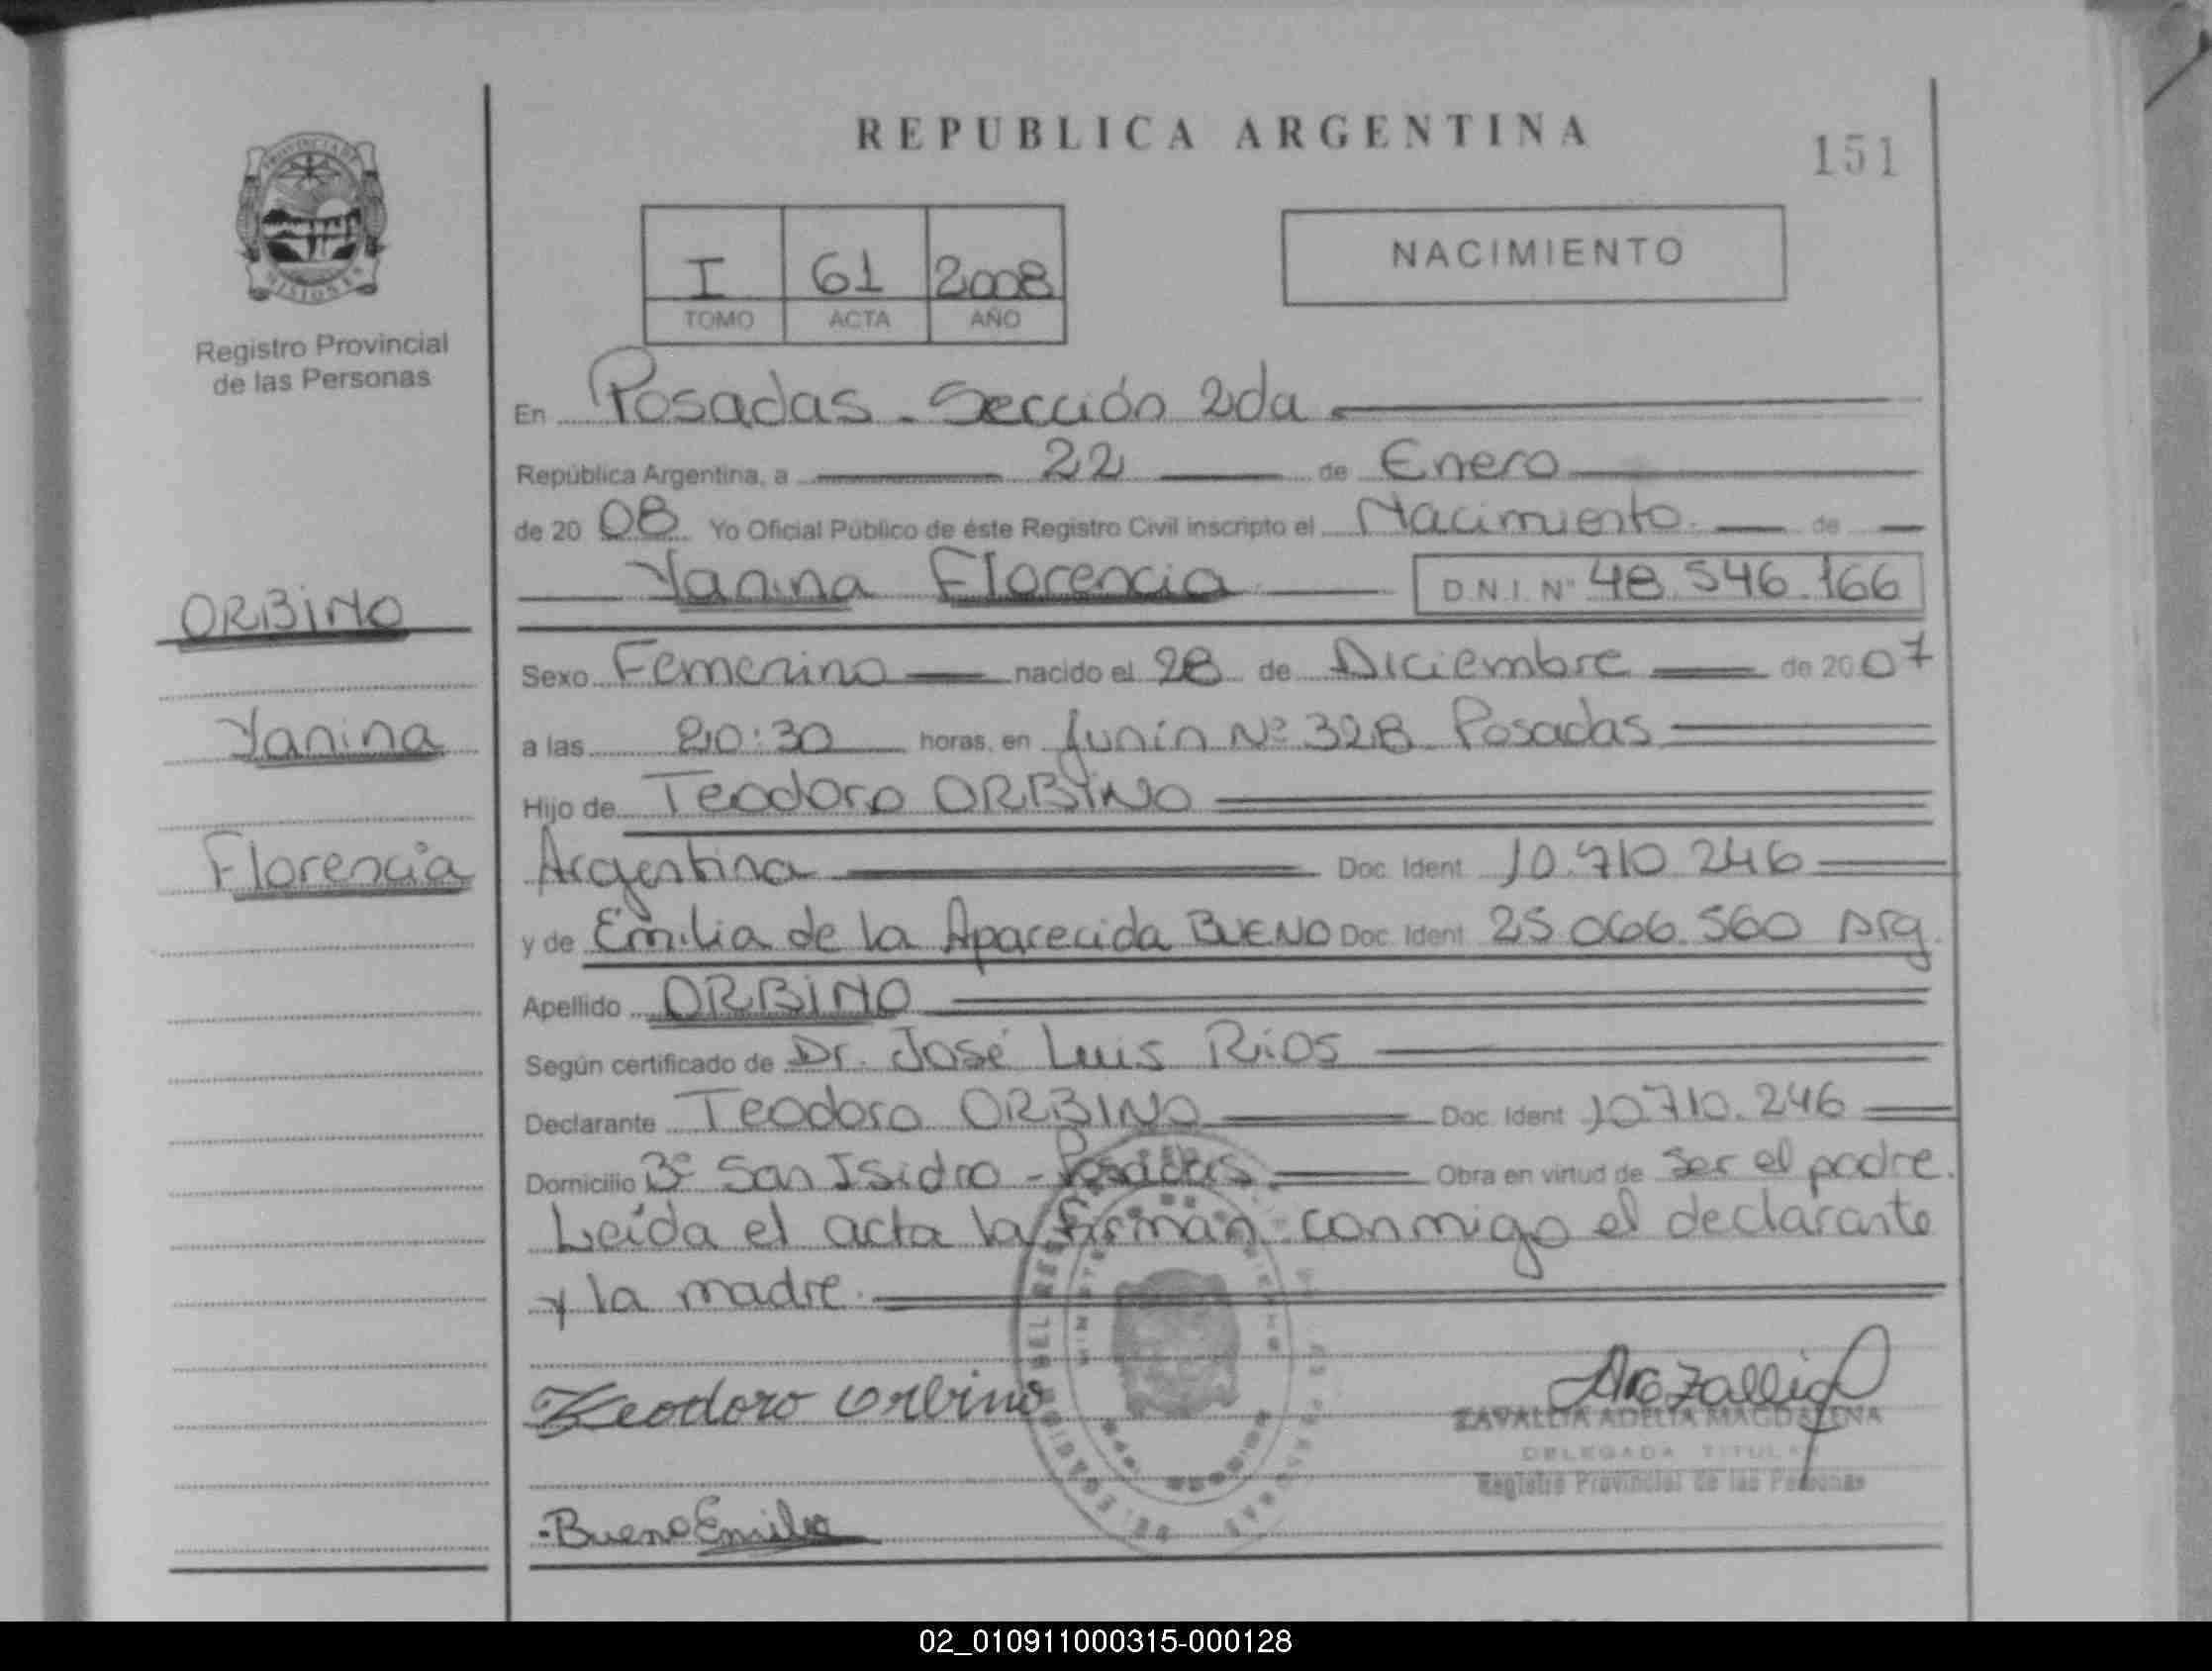 REPUBLICA ARGENTINA
151
PROVINCIA DE
MISIONES
Registro Provincial
de las Personas
I 61 2008
TOMO ACTA AÑO
NACIMIENTO
En Posadas - Sección 2da
República Argentina, a 22 de Enero
de 20 08 Yo Oficial Público de éste Registro Civil inscripto el Nacimiento de
Yanina Florencia D.N.I. Nº 48.546.166
ORBINO
Yanina
Florencia
Sexo Femenino nacido el 28 de Diciembre de 20 07
a las 20:30 horas, en Junín Nº 328 Posadas
Hijo de Teodoro ORBINO
Argentina Doc. Ident. 10.710.246
y de Emilia de la Aparecida BUENO Doc. Ident. 25.066.560 Arg.
Apellido ORBINO
Según certificado de Dr. José Luis Ríos
Declarante Teodoro ORBINO Doc. Ident. 10.710.246
Domicilio Bº San Isidro - Posadas. Obra en virtud de ser el padre.
Leída el acta la firman conmigo el declarante
y la madre.
Teodoro Orbino
ZAVALLA ADELIA MAGDALENA
DELEGADA TITULAR
Registro Provincial de las Personas
Bueno Emilia
02_010911000315-000128